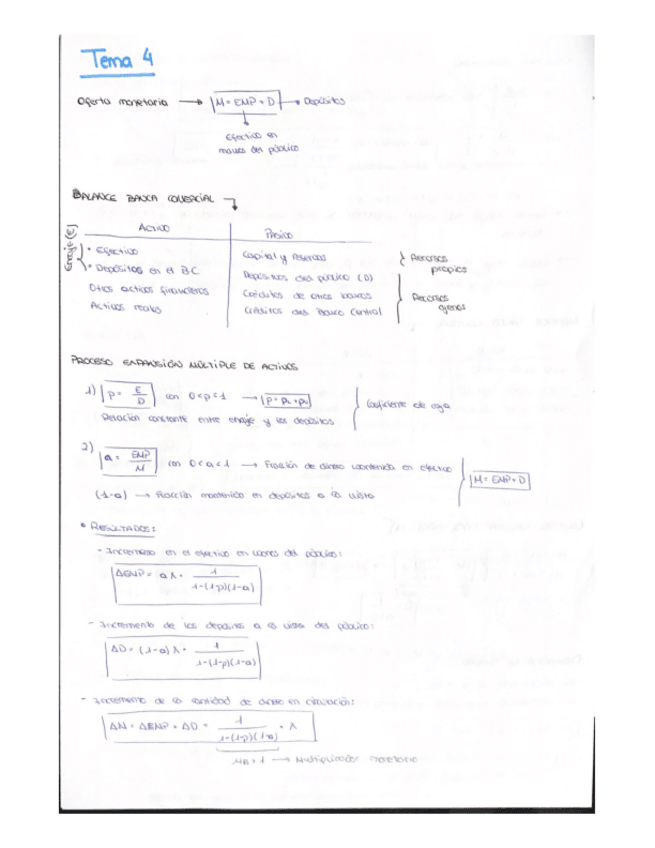 Tema 4
Oferta monetaria → M = EMP + D → Depósitos
Efectivo en
manos del público
BALANCE BANCA COMERCIAL
ACTIVO PASIVO
Encaje (E)
• Efectivo Capital y reservas Recursos propios
• Depósitos en el B.C. Depósitos del público (D)
Otros activos financieros Créditos de otros bancos Recursos ajenos
Activos reales Créditos del Banco Central
PROCESO EXPANSIÓN MÚLTIPLE DE ACTIVOS
1) p = E/D con 0<p<1 → p = pL + pv Coeficiente de caja
Relación constante entre encaje y los depósitos
2) a = EMP/M con 0<a<1 → Fracción de dinero mantenida en efectivo M = EMP + D
(1-a) → Fracción mantenida en depósitos a la vista
• RESULTADOS:
- Incremento en el efectivo en manos del público:
ΔEMP = a λ · 1/1-(1-p)(1-a)
- Incremento de los depósitos a la vista del público:
ΔD = (1-a) λ · 1/1-(1-p)(1-a)
- Incremento de la cantidad de dinero en circulación:
ΔM = ΔEMP + ΔD = 1/1-(1-p)(1-a) · λ
> 1 → Multiplicador monetario